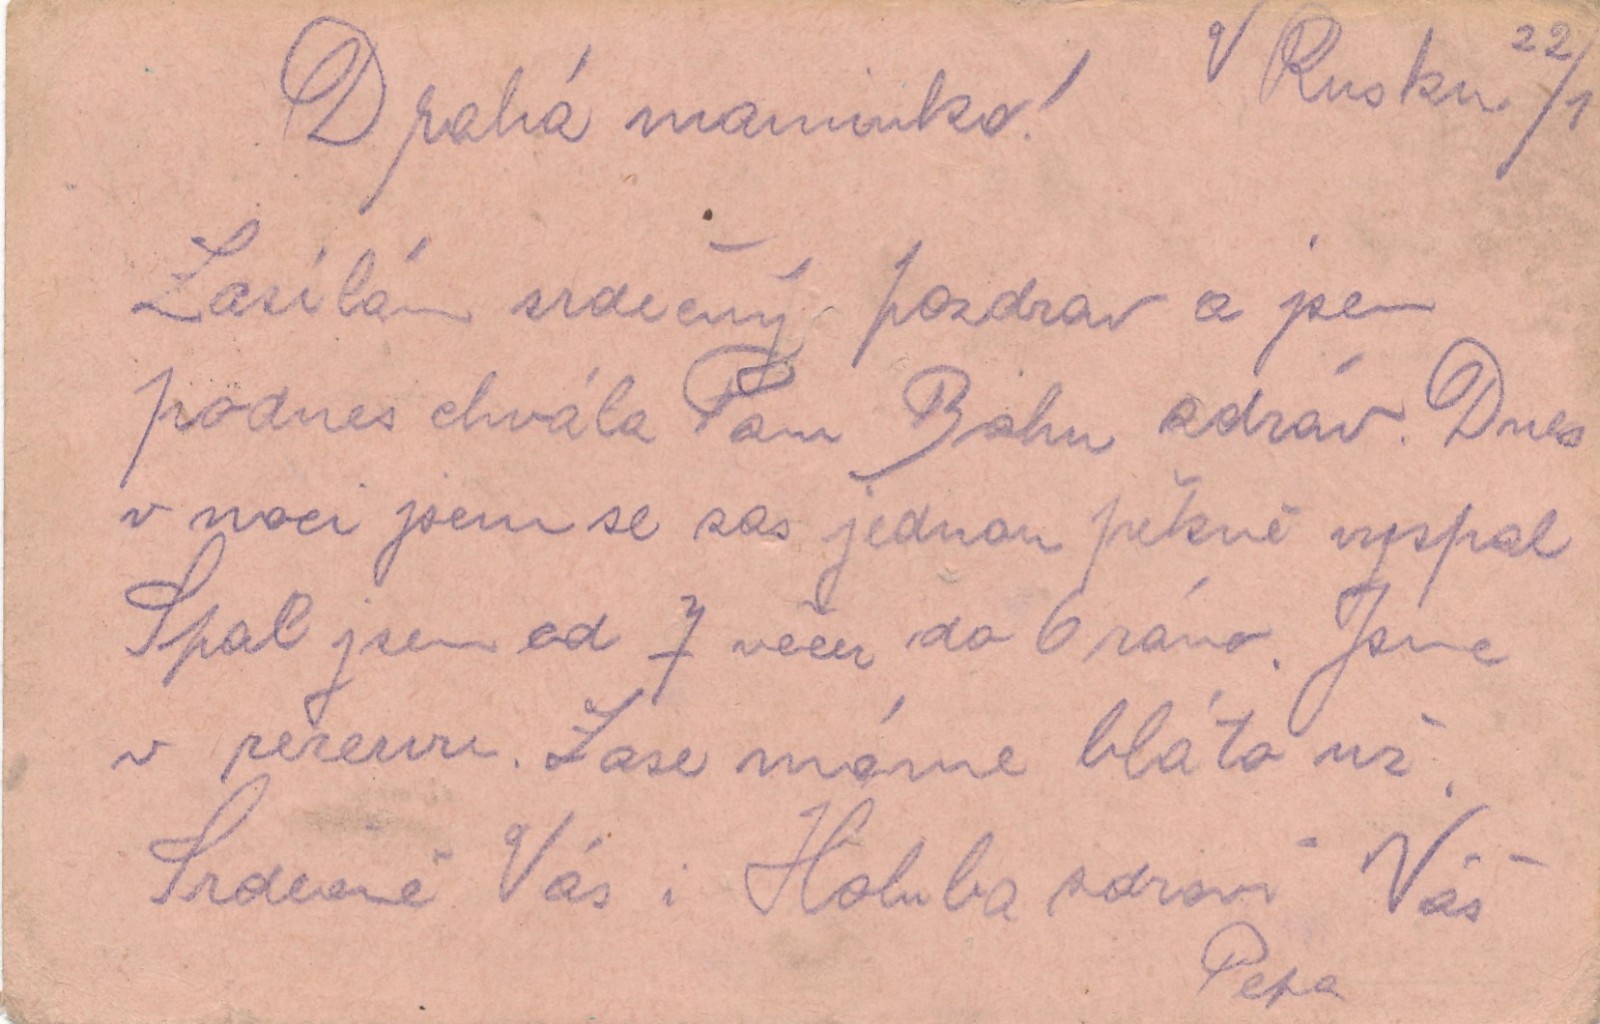 V Rusku 22/1
Drahá maminko!
Zasílám srdečný pozdrav a jsem
podnes chvála Pánu Bohu zdráv. Dnes
v noci jsem se zas jednou pěkně vyspal
Spal jsem od 7 večer do 6 ráno. Jsme
v rezervu. Zase máme bláto už.
Srdečně Vás i Holuba zdraví Váš
Pepa